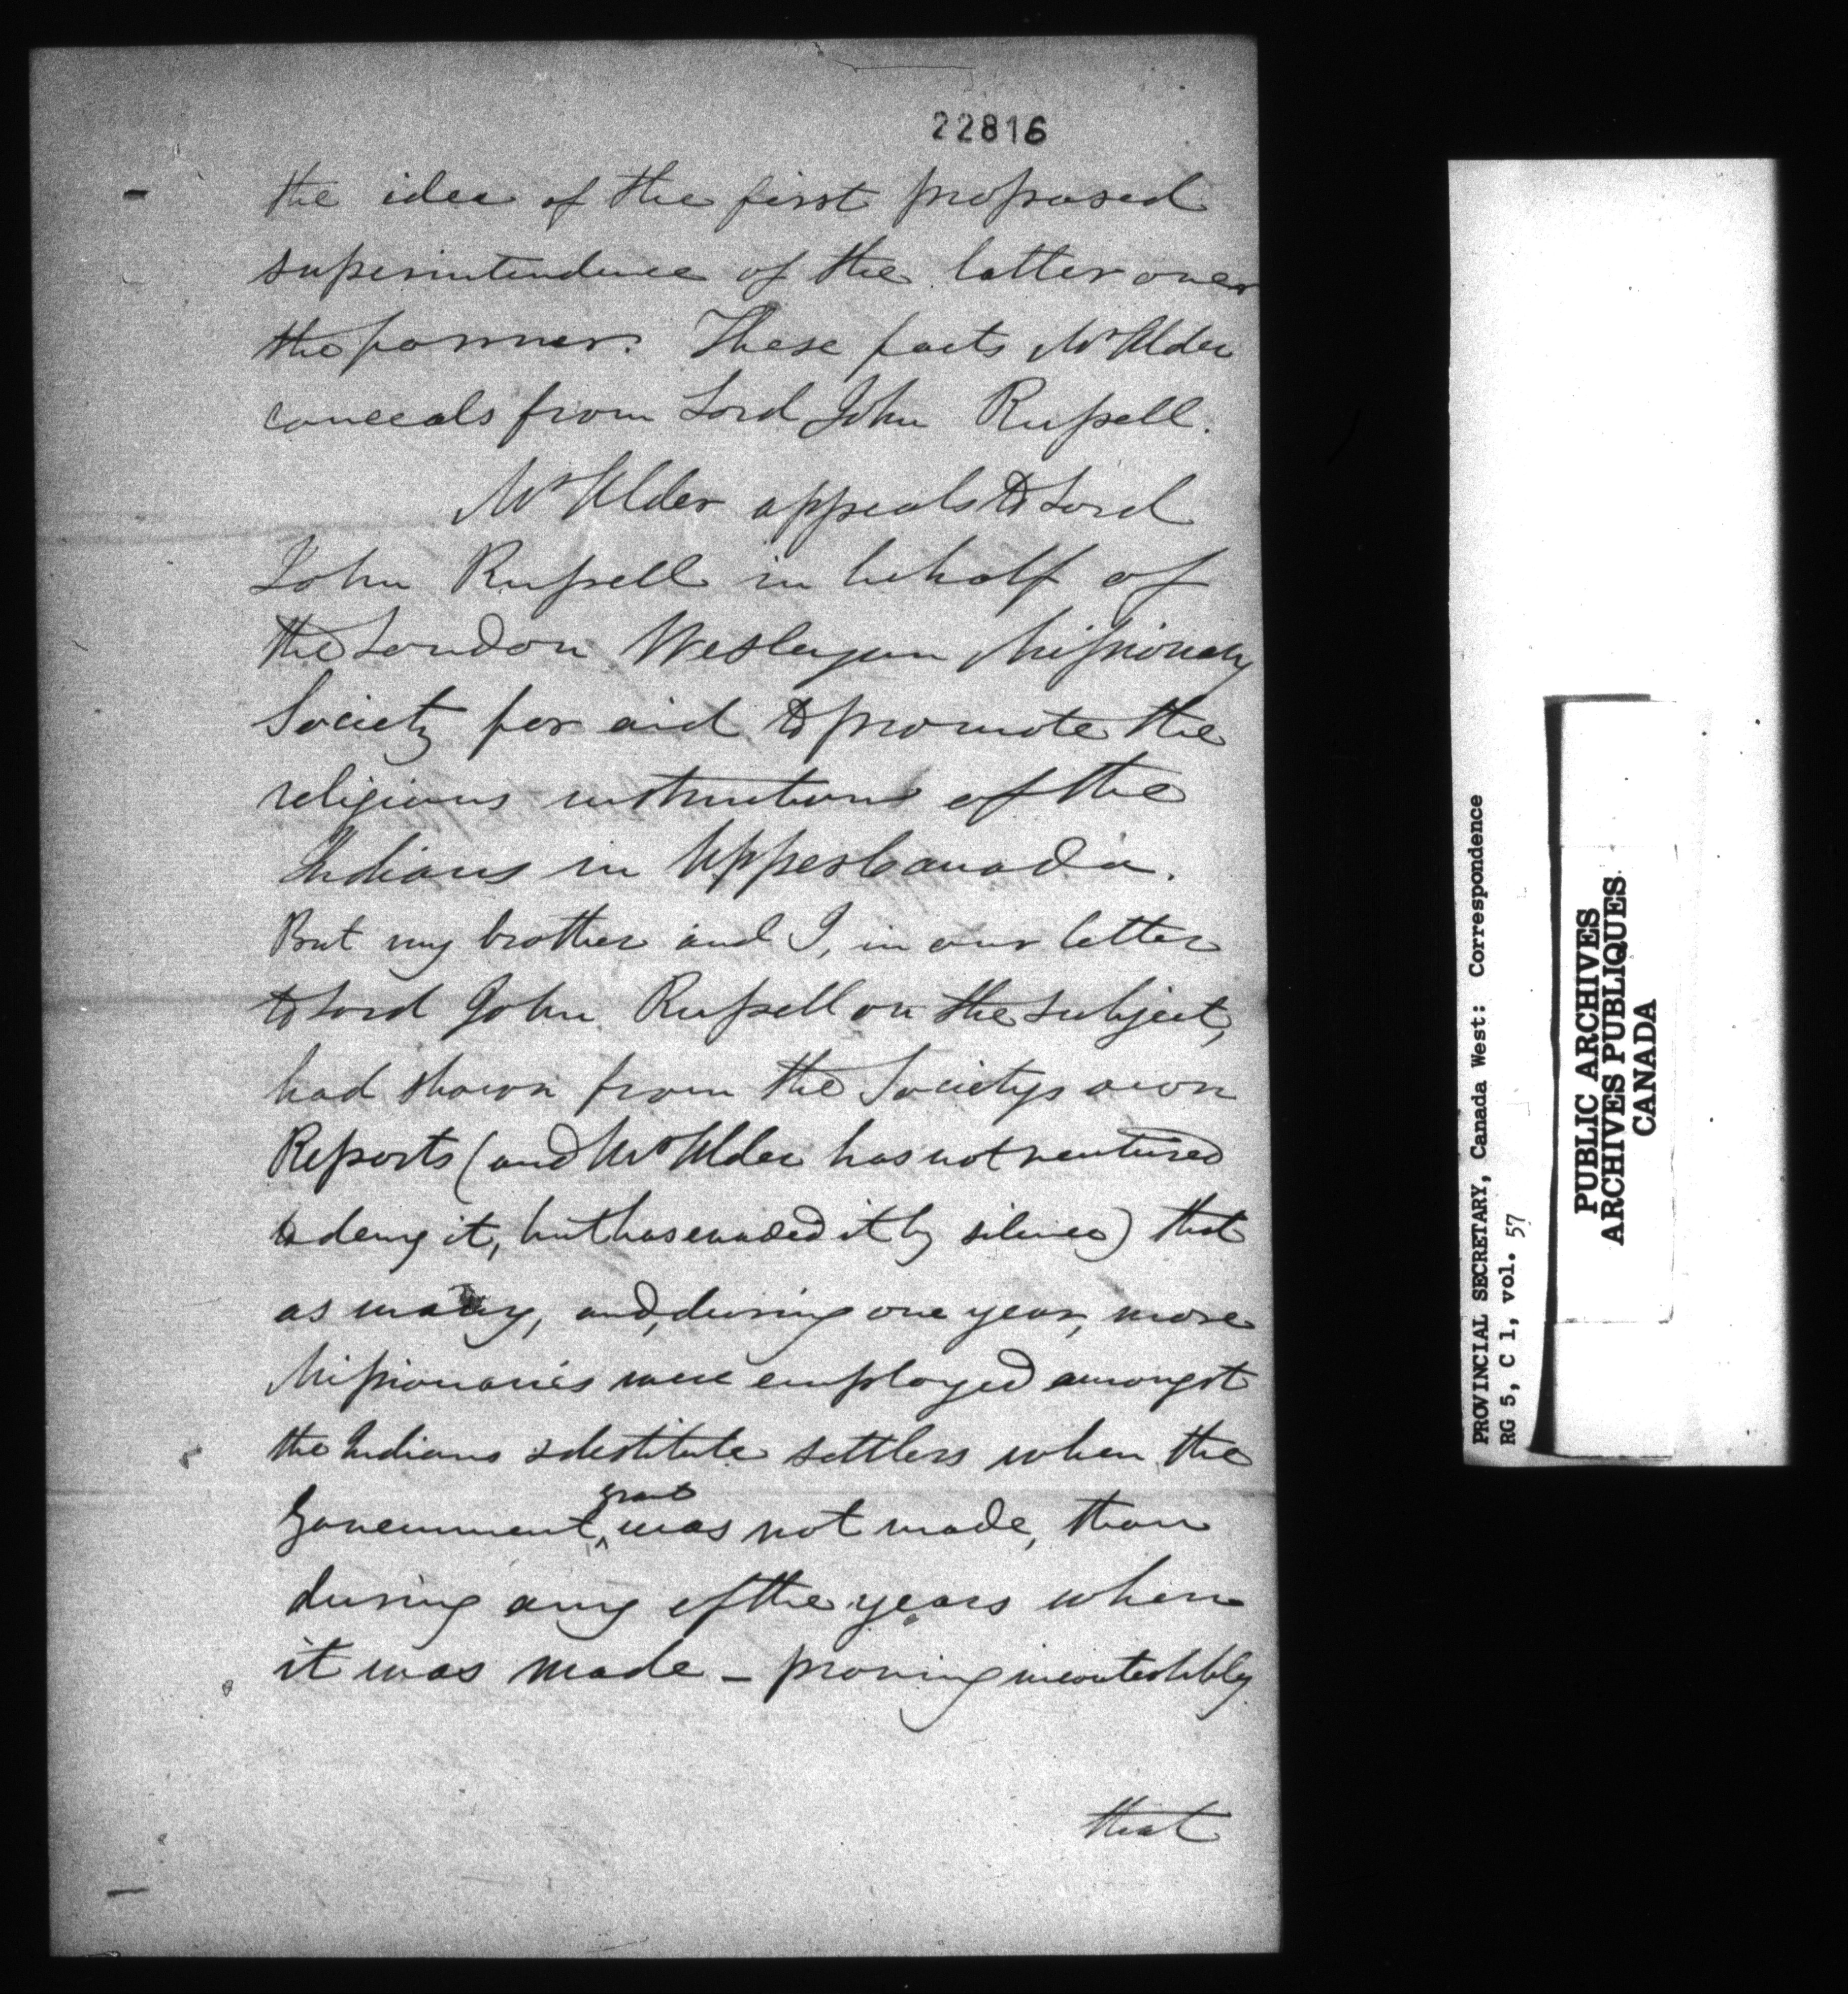 22816
the idea of the first proposed
superintendence of the latter over
the former. These facts Mr Alder
conceals from Lord John Russell.
Mr Alder appeals to Lord
John Russell in behalf of
the London Wesleyan Missionary
Society for aid to promote the
religious instruction of the
Indians in Upper Canada.
But my brother and I, in our letter
to Lord John Russell on the subject,
had shown from the Societys own
Reports (and Mr Alder has not ventured
to deny it, but has evaded it by silence) that
as many, and, during one year, more
Missionaries were employed amongst
the Indians & destitute settlers when the
Government grant was not made, than
during any of the years when
it was made – proving incontestibly
that
PROVINCIAL SECRETARY, Canada West: Correspondence
RG 5, C 1, vol. 57
PUBLIC ARCHIVES
ARCHIVES PUBLIQUES
CANADA